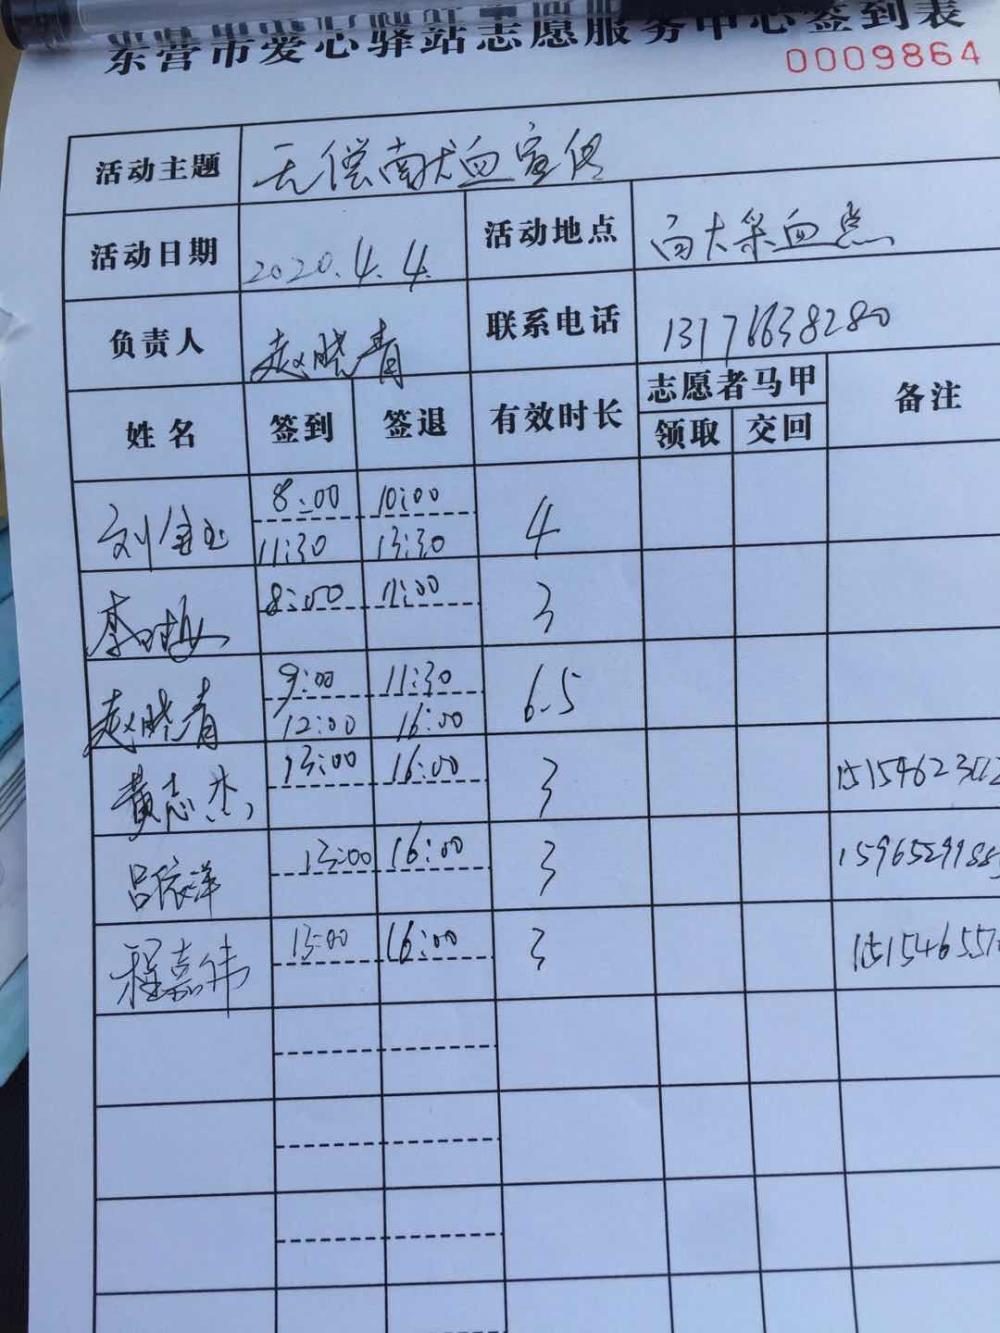 东营市爱心驿站志愿服务中心签到表
0009864
活动主题 无偿献血宣传
活动日期 2020.4.4. 活动地点 百大采血点
负责人 赵晓青 联系电话 13176638280
姓名 签到 签退 有效时长 志愿者马甲 备注
领取 交回
刘金玉 8:00 10:00 4
11:30 13:30
李时梅 8:00 11:00 3
赵晓青 9:00 11:30 6.5
12:00 16:00
黄志杰 13:00 16:00 3
吕依洋 13:00 16:00 3 1596529988
程嘉伟 13:00 16:00 3 151546551